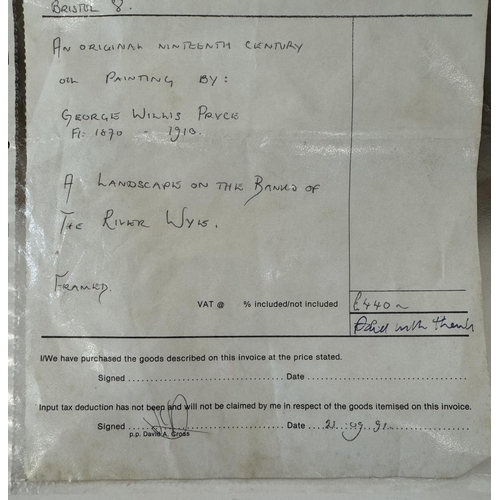 BRISTOL 8.
AN ORIGINAL NINTEENTH CENTURY
OIL PAINTING BY:
GEORGE WILLIS PRYCE
Fl: 1870 - 1910.
A LANDSCAPE ON THE BANKS OF
THE RIVER WYE.
FRAMED.
VAT @ % included/not included £440~
Paid with thanks
I/We have purchased the goods described on this invoice at the price stated.
Signed Date
Input tax deduction has not been and will not be claimed by me in respect of the goods itemised on this invoice.
Signed Date 21.09.91
p.p. David A. Cross